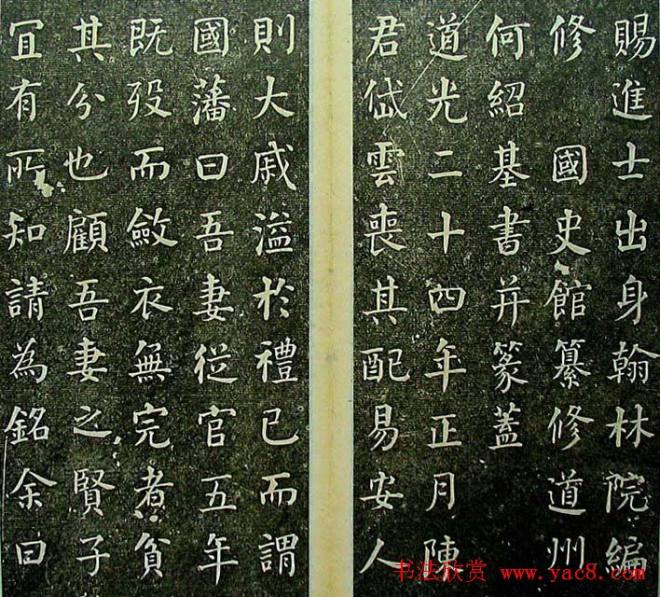 賜進士出身翰林院編
修 國史館纂修道州
何紹基書并篆蓋
道光二十四年正月陳
君岱雲喪其配易安人
則大戚溢於禮已而謂
國藩曰吾妻從官五年
既歿而斂衣無完者貧
其分也顧吾妻之賢子
宜有所知請為銘余曰
书法欣赏 www.yac8.com